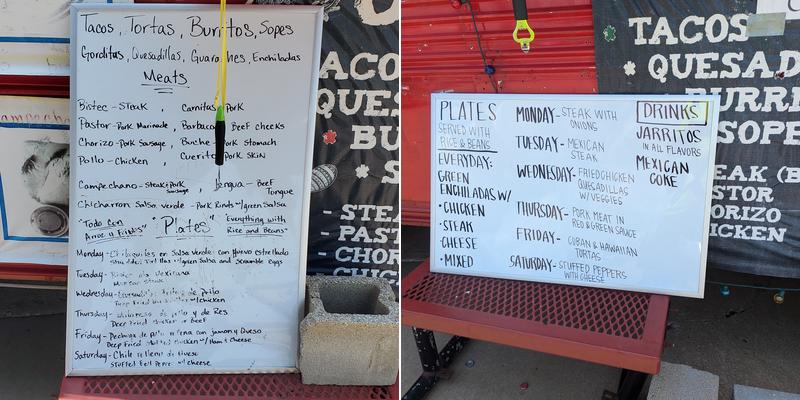 Tacos, Tortas, Burritos, Sopes
Gorditas, Quesadillas, Guaraches, Enchiladas
Meats
Bistec - Steak, Carnitas Pork
Pastor - Pork Marinade, Barbacoa Beef cheeks
Chorizo - Pork Sausage, Buche - Pork stomach
Pollo - Chicken, Cuerito Pork Skin
Campechano - steak & Pork Sausage, Lengua - Beef Tongue
Chicharron Salsa verde - Pork Rinds w/green Salsa
"Todo Con Arroz y Frijoles" "Plates" "Everything with Rice and Beans"
Monday - Chilaquiles en Salsa verde con Huevo estrellado
w/green Salsa and Scramble eggs
Tuesday - Bistec Mexicana
Mexican Steak
Wednesday - de Pollo
Deep Fried w/chicken
Thursday - de pollo y de Res
Deep Fried chicken or Beef
Friday - Pechuga de pollo rellena con jamon y Queso
Deep Fried Stuffed chicken w/Ham & cheese
Saturday - Chile relleno de Queso
Stuffed Bell Pepper w/cheese
ACO
QUES
BU
S
- STEA
- PAST
- CHOR
CHIC
TACOS
QUESAD
BURRI
SOPE
EAK (B
STOR
ORIZO
ICKEN
PLATES
SERVED WITH
RICE & BEANS
EVERYDAY:
GREEN
ENCHILADAS W/
• CHICKEN
• STEAK
• CHEESE
• MIXED
MONDAY - STEAK WITH
ONIONS
TUESDAY - MEXICAN
STEAK
WEDNESDAY - FRIED CHICKEN
QUESADILLAS
W/ VEGGIES
THURSDAY - PORK MEAT IN
RED & GREEN SAUCE
FRIDAY - CUBAN & HAWAIIAN
TORTAS
SATURDAY - STUFFED PEPPERS
WITH CHEESE
DRINKS
JARRITOS
IN ALL FLAVORS
MEXICAN
COKE